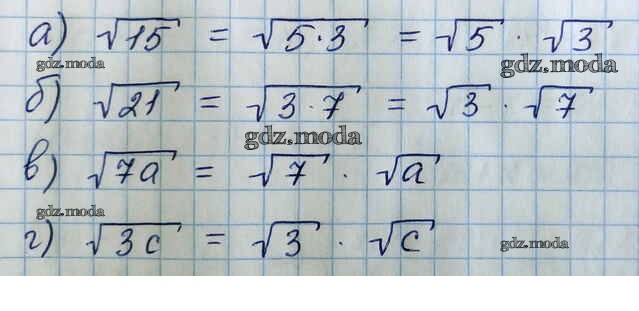 а) √15 = √5·3 = √5 · √3
gdz.moda gdz.moda
б) √21 = √3·7 = √3 · √7
gdz.moda
в) √7a = √7 · √a
gdz.moda
г) √3c = √3 · √c
gdz.moda